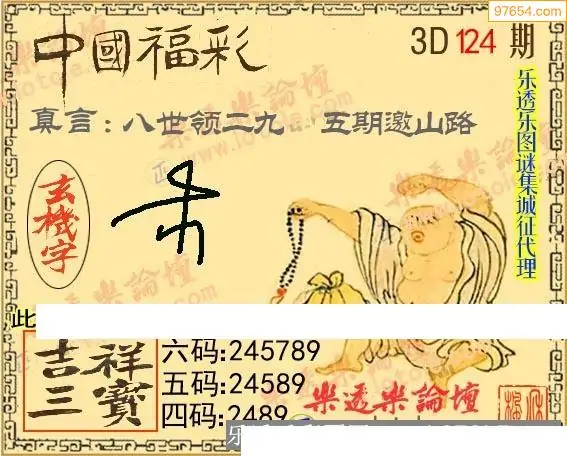 97654.com
中國福彩
3D 124 期
真言:八世领二九 五期邀山路
乐透乐图谜集城征代理
玄機字
此
吉祥三寶
六码:245789
五码:24589
四码:2489
樂透樂論壇
乐